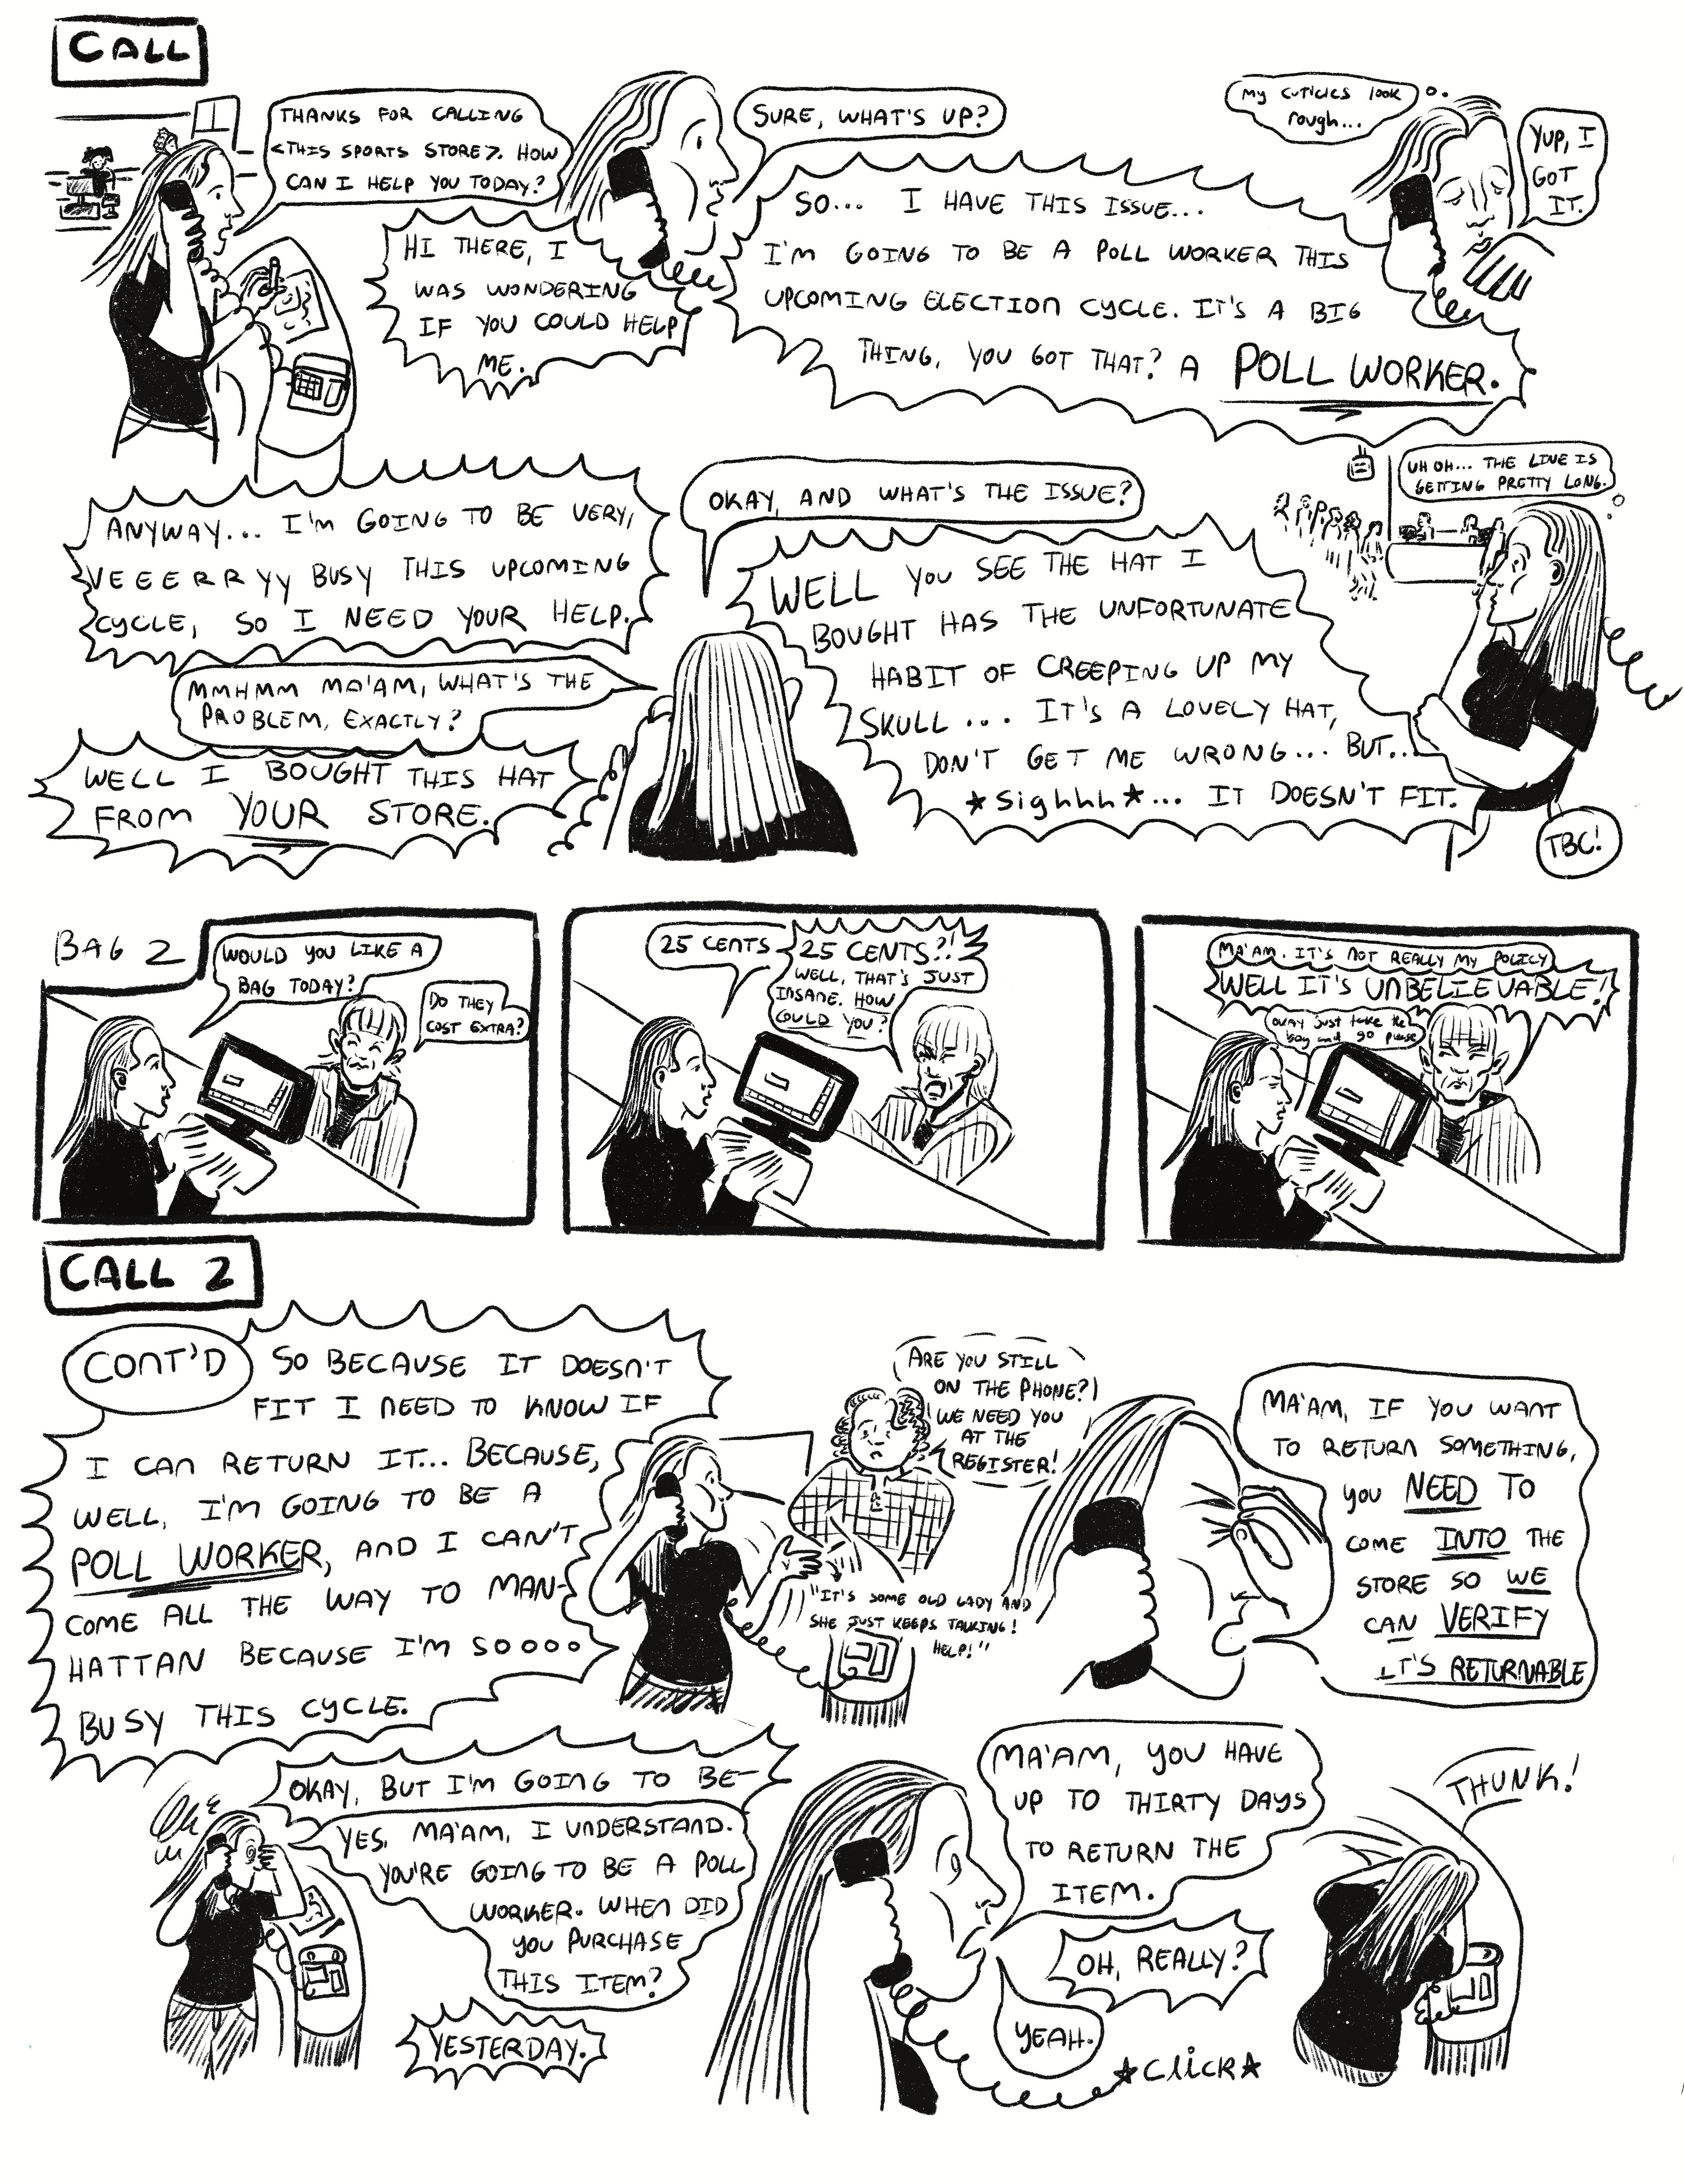 CALL
THANKS FOR CALLING
<THIS SPORTS STORE>. HOW
CAN I HELP YOU TODAY?
HI THERE, I
WAS WONDERING
IF YOU COULD HELP
ME.
SURE, WHAT'S UP?
SO... I HAVE THIS ISSUE...
I'M GOING TO BE A POLL WORKER THIS
UPCOMING ELECTION CYCLE. IT'S A BIG
THING, YOU GOT THAT? A POLL WORKER.
MY CUTICLES LOOK
rough...
YUP, I
GOT
IT.
ANYWAY... I'M GOING TO BE VERY,
VEEERRYY BUSY THIS UPCOMING
CYCLE, SO I NEED YOUR HELP.
MMHMM MA'AM, WHAT'S THE
PROBLEM, EXACTLY?
WELL I BOUGHT THIS HAT
FROM YOUR STORE.
OKAY, AND WHAT'S THE ISSUE?
WELL YOU SEE THE HAT I
BOUGHT HAS THE UNFORTUNATE
HABIT OF CREEPING UP MY
SKULL... IT'S A LOVELY HAT,
DON'T GET ME WRONG... BUT...
★Sighhh★... IT DOESN'T FIT.
UH OH... THE LINE IS
GETTING PRETTY LONG.
TBC!
BAG 2
WOULD YOU LIKE A
BAG TODAY?
DO THEY
COST EXTRA?
25 CENTS
25 CENTS?!
WELL, THAT'S JUST
INSANE. HOW
COULD YOU?
MA'AM. IT'S NOT REALLY MY POLICY
WELL IT'S UNBELIEVABLE!
okay just take the
bag and go please
CALL 2
CONT'D
SO BECAUSE IT DOESN'T
FIT I NEED TO KNOW IF
I CAN RETURN IT... BECAUSE,
WELL, I'M GOING TO BE A
POLL WORKER, AND I CAN'T
COME ALL THE WAY TO MAN-
HATTAN BECAUSE I'M SOOOO
BUSY THIS CYCLE.
ARE YOU STILL
ON THE PHONE?
WE NEED YOU
AT THE
REGISTER!
"IT'S SOME OLD LADY AND
SHE JUST KEEPS TALKING!
HELP!"
MA'AM, IF YOU WANT
TO RETURN SOMETHING,
YOU NEED TO
COME INTO THE
STORE SO WE
CAN VERIFY
IT'S RETURNABLE
OKAY, BUT I'M GOING TO BE-
YES, MA'AM, I UNDERSTAND.
YOU'RE GOING TO BE A POLL
WORKER. WHEN DID
YOU PURCHASE
THIS ITEM?
YESTERDAY.
MA'AM, YOU HAVE
UP TO THIRTY DAYS
TO RETURN THE
ITEM.
OH, REALLY?
YEAH.
★CLICK★
THUNK!